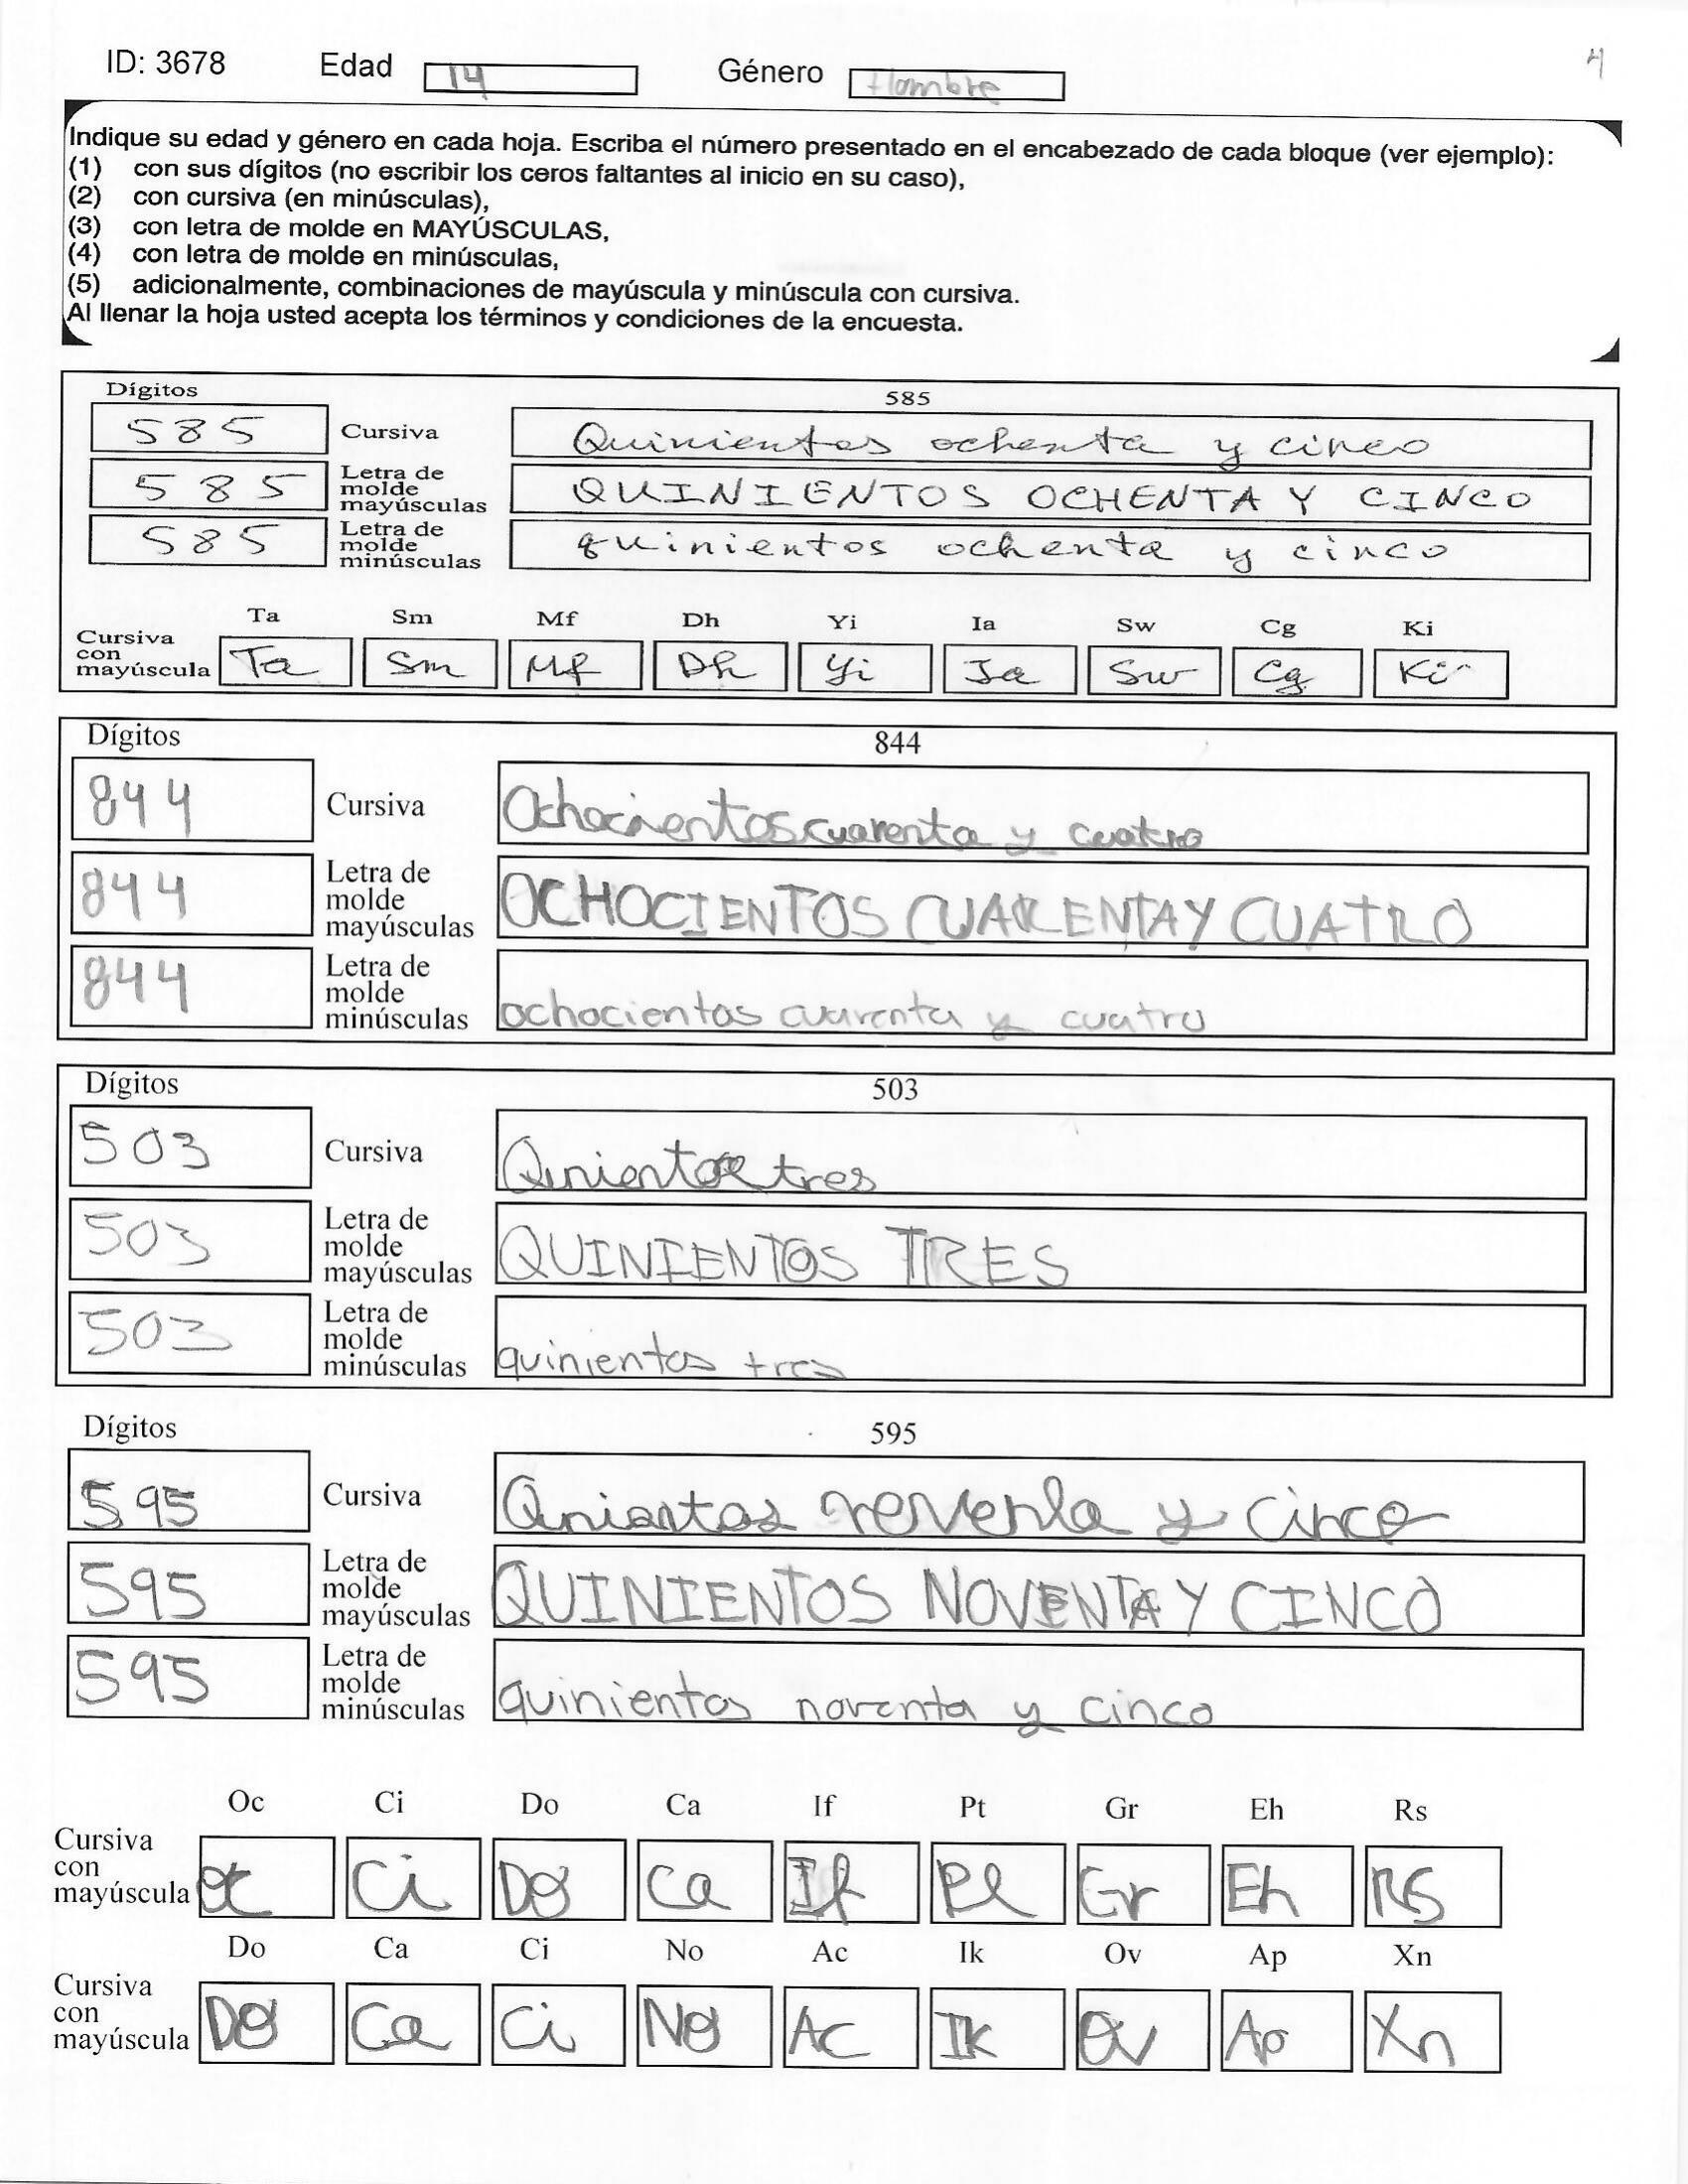 ID: 3678 Edad 14 Género Hombre 4
Indique su edad y género en cada hoja. Escriba el número presentado en el encabezado de cada bloque (ver ejemplo):
(1) con sus dígitos (no escribir los ceros faltantes al inicio en su caso),
(2) con cursiva (en minúsculas),
(3) con letra de molde en MAYÚSCULAS,
(4) con letra de molde en minúsculas,
(5) adicionalmente, combinaciones de mayúscula y minúscula con cursiva.
Al llenar la hoja usted acepta los términos y condiciones de la encuesta.
Dígitos 585
585 Cursiva Quinientos ochenta y cinco
585 Letra de molde mayúsculas QUINIENTOS OCHENTA Y CINCO
585 Letra de molde minúsculas quinientos ochenta y cinco
Ta Sm Mf Dh Yi Ia Sw Cg Ki
Cursiva con mayúscula Ta Sm Mf Dh Yi Ia Sw Cg Ki
Dígitos 844
844 Cursiva Ochocientos cuarenta y cuatro
844 Letra de molde mayúsculas OCHOCIENTOS CUARENTA Y CUATRO
844 Letra de molde minúsculas ochocientos cuarenta y cuatro
Dígitos 503
503 Cursiva Qinientos tres
503 Letra de molde mayúsculas QUINIENTOS TRES
503 Letra de molde minúsculas quinientos tres
Dígitos 595
595 Cursiva y cinco
595 Letra de molde mayúsculas QUINIENTOS NOVENTA Y CINCO
595 Letra de molde minúsculas quinientos noventa y cinco
Oc Ci Do Ca If Pt Gr Eh Rs
Cursiva con mayúscula Oc Ci Do Ca If Pl Gr Eh RS
Do Ca Ci No Ac Ik Ov Ap Xn
Cursiva con mayúscula Do Ca Ci No Ac Ik Ov Ap Xn